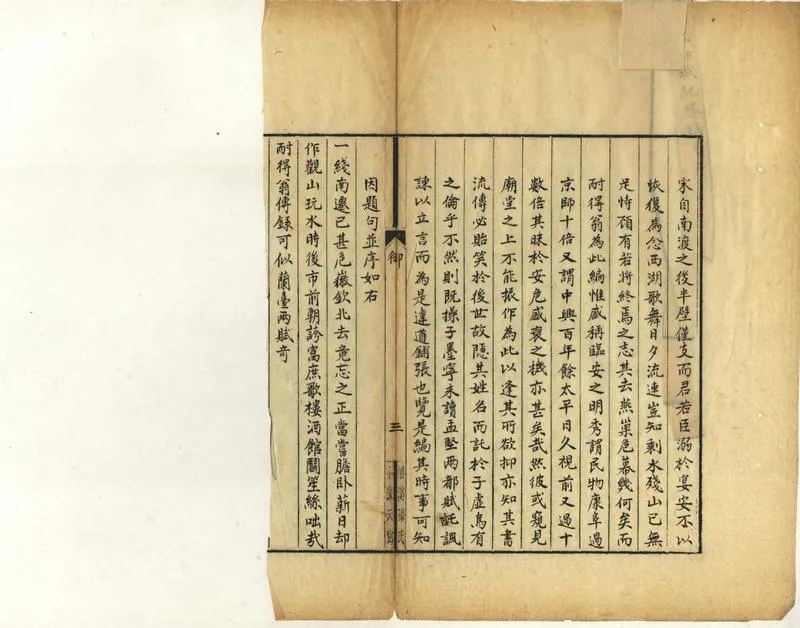 宋自南渡之後半壁僅支而君若臣溺於宴安不以
恢復為念西湖歌舞日夕流連豈知剩水殘山已無
足恃頋有若將終焉之志其去燕巢危幕幾何矣而
耐得翁為此編惟盛稱臨安之明秀謂民物康阜過
京師十倍又謂中興百年餘太平日久視前又過十
數倍其昧於安危盛衰之機亦甚矣哉然彼或窺見
廟堂之上不能振作為此以逢其所欲抑亦知其書
流傳必貽笑於後世故隱其姓名而託於子虛烏有
之倫乎不然則既操子墨寧未讀孟堅兩都賦託諷
諫以立言而為是違道鋪張也覽是編其時事可知
因題句並序如右
一綫南遷已甚危徽欽北去竟忘之正當嘗膽卧薪日却
作觀山玩水時後市前朝誇富庶歌樓酒館鬭笙絲咄哉
耐得翁傳錄可似蘭臺兩賦奇
御
三